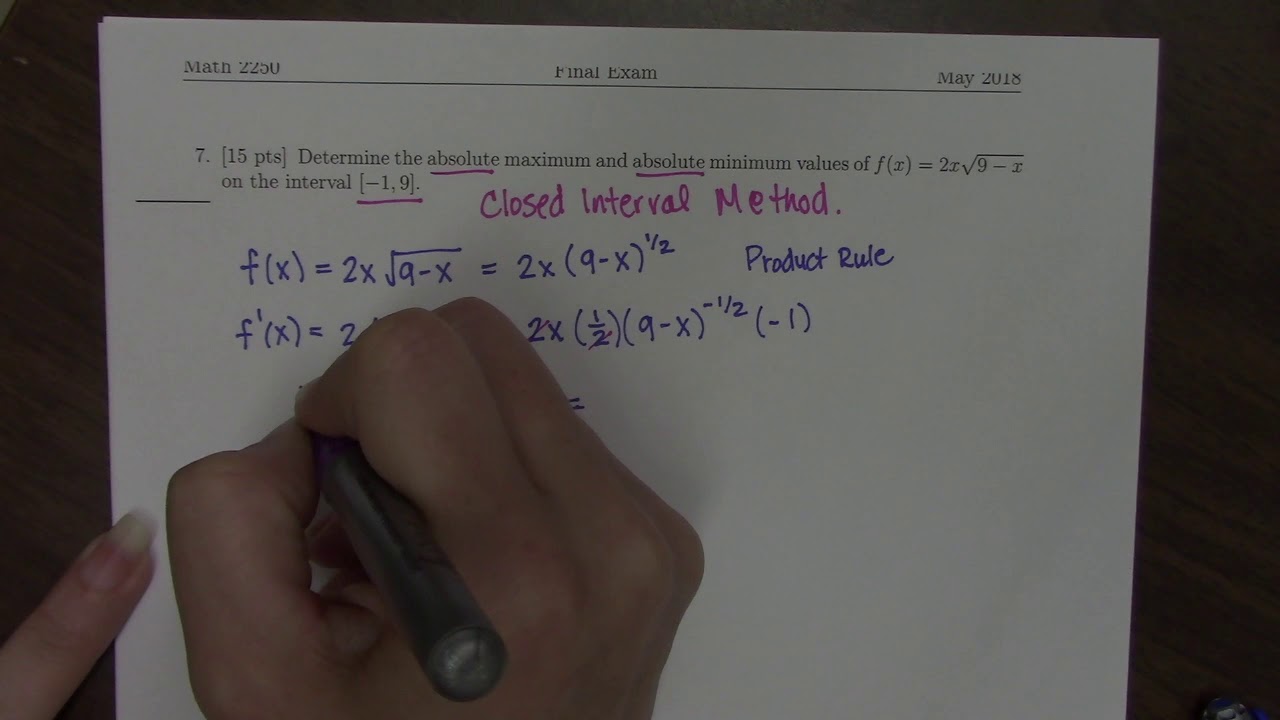 Math 2250 Final Exam May 2018
7. [15 pts] Determine the absolute maximum and absolute minimum values of f(x) = 2x√(9 − x)
on the interval [−1, 9].
Closed Interval Method.
f(x) = 2x √(9-x) = 2x (9-x)^1/2 Product Rule
f'(x) = 2 2x (1/2)(9-x)^-1/2 (-1)
=